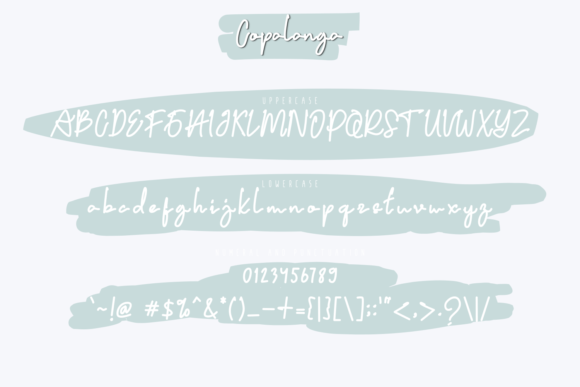 Copalonga
UPPERCASE
ABCDEFGHIJKLMNOPQRSTUVWXYZ
LOWERCASE
abcdefghijklmnopqrstuvwxyz
0123456789
`~!@ #$%^&*()_-+={|}[\];:'"<,>.?\|/